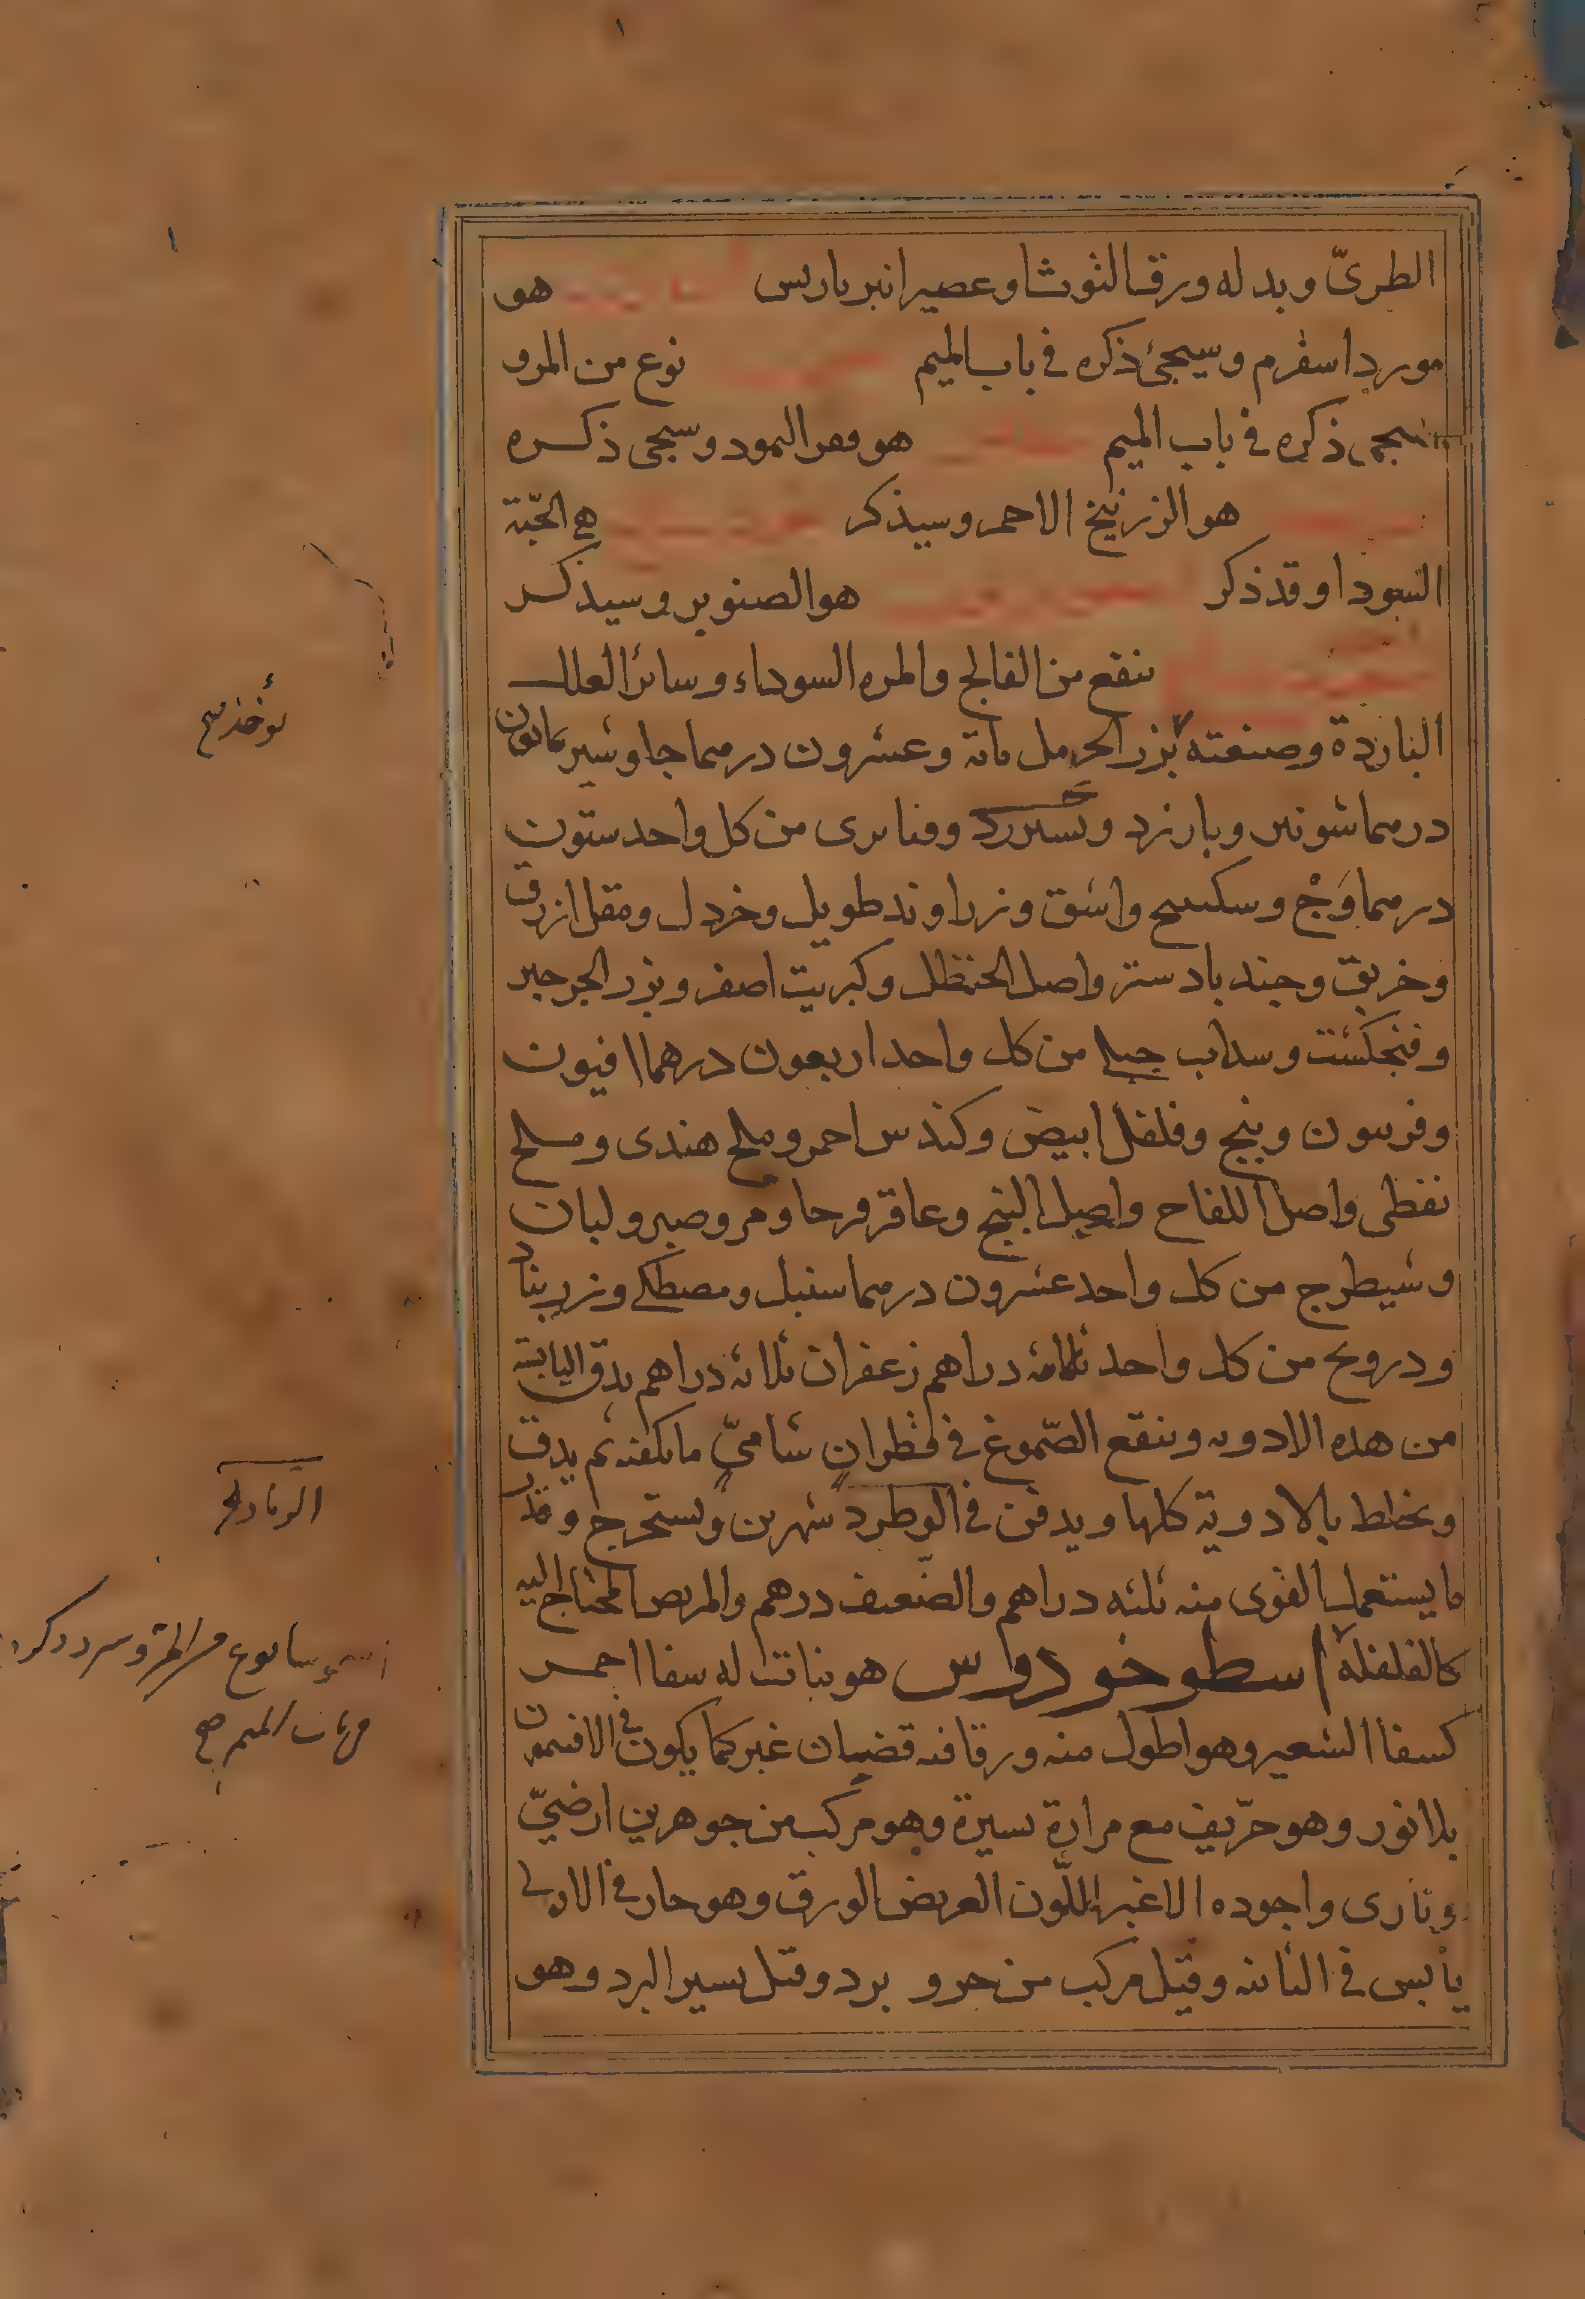 الطرىّ وبدله ورق التوث او عصير انبر باريس هو
مورد اسفرم وسيجئ ذكره في باب الميم نوع من المرو
سيجى ذكره في باب الميم هو قفر اليهود وسيجى ذكره
هو الزرنيخ الاحمر وسيذكر هي الحبّة
السودا وقد ذكر هو الصنوبر وسيذكر
ينفع من الفالج والمره السوداء وسائر العلل
الباردة وصنعته بزر الحرمل مائة وعشرون درهما جاوشير ثمانون
درهما شونيز وبارزد من كل واحد ستون
درهما وَجْ وسكبينج واشق وزراوند طويل وخردل ومقل ازرق
وخربق وجندبادستر واصل الحنظل وكبريت اصفر وبزر الجرجير
وفنجكشت وسداب جبلى من كل واحد اربعون درهما افيون
وفربيون وبنج وفلفل ابيض وكندس احمر وملح هندى وملح
نفطى واصل اللفاح واصل البنج وعاقرقرحا ومر وصبر ولبان
وشيطرج من كل واحد عشرون درهما سنبل ومصطكى وزرنباد
ودرونج من كل واحد ثمانية دراهم زعفران ثلاثة دراهم يدق اليابسة
من هذه الادويه وينقع الصّموغ في قطران شامىّ ما يكفيه ثم يدق
ويخلط بالادوية كلها ويدفن في شهرين ويستخرج وقدر
ما يستعمل القوى منه ثلثه دراهم والضّعيف درهم والمريض المحتاج اليه
كالفلفله اسطوخودوس هو نبات له سفا احمر
كسفا الشعير وهو اطول منه ورقا فيه قضبان غبر كما يكون في الافتيمون
بلا نور وهو حرّيف مع مرارة يسيرة وهو مركب من جوهرين ارضىّ
ونارى واجوده الاغبر اللّون العريض الورق وهو حار في الاولى
يابس في الثانيه وقيل مركب من حر و برد وقيل يسير البرد وهو
يؤخذ صح
باب الميم صح